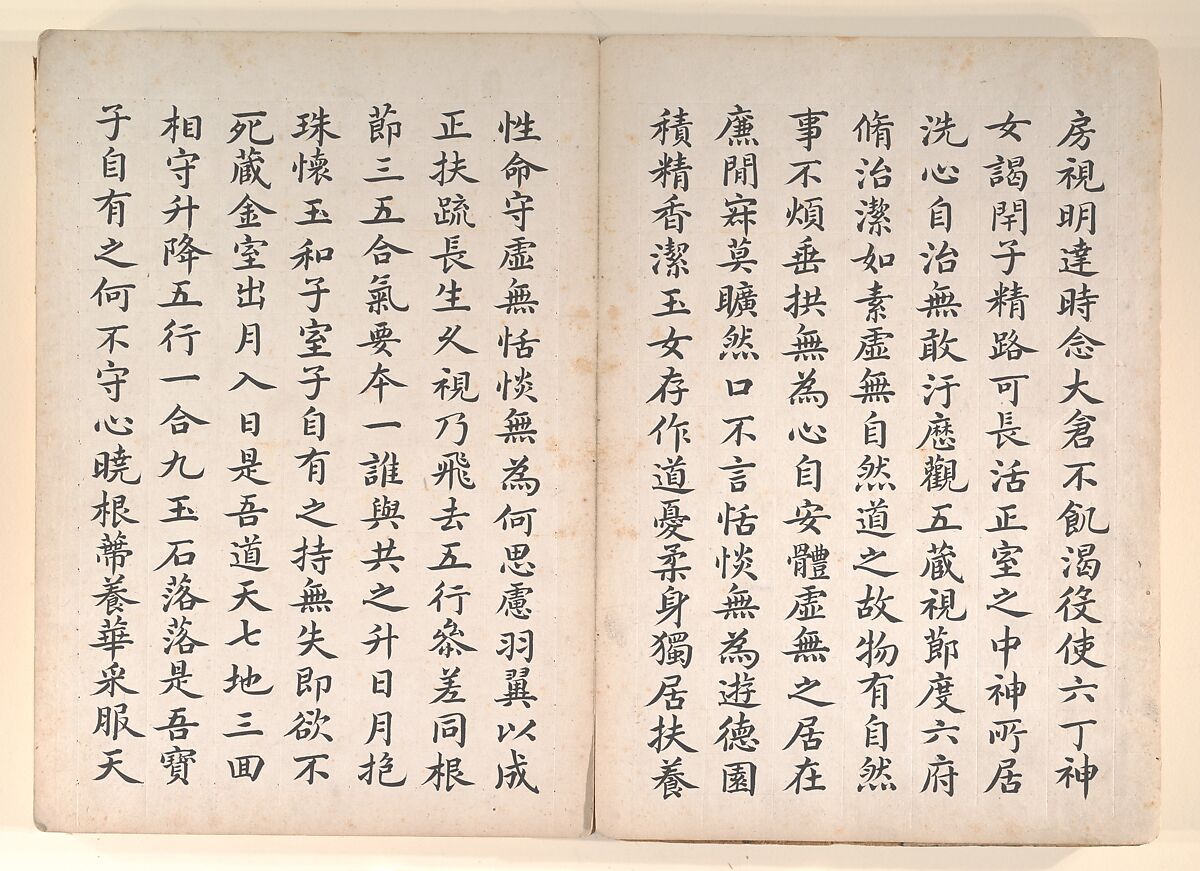 房視明達時念大倉不飢渴役使六丁神
女謁開子精路可長活正室之中神所居
洗心自治無敢汙歷觀五藏視節度六府
脩治潔如素虛無自然道之故物有自然
事不煩垂拱無為心自安體虛無之居在
廉閒寂莫曠然口不言恬惔無為遊德園
積精香潔玉女存作道憂柔身獨居扶養
性命守虛無恬惔無為何思慮羽翼以成
正扶疏長生久視乃飛去五行參差同根
節三五合氣要本一誰與共之升日月抱
珠懷玉和子室子自有之持無失即欲不
死藏金室出月入日是吾道天七地三回
相守升降五行一合九玉石落落是吾寶
子自有之何不守心曉根蔕養華采服天